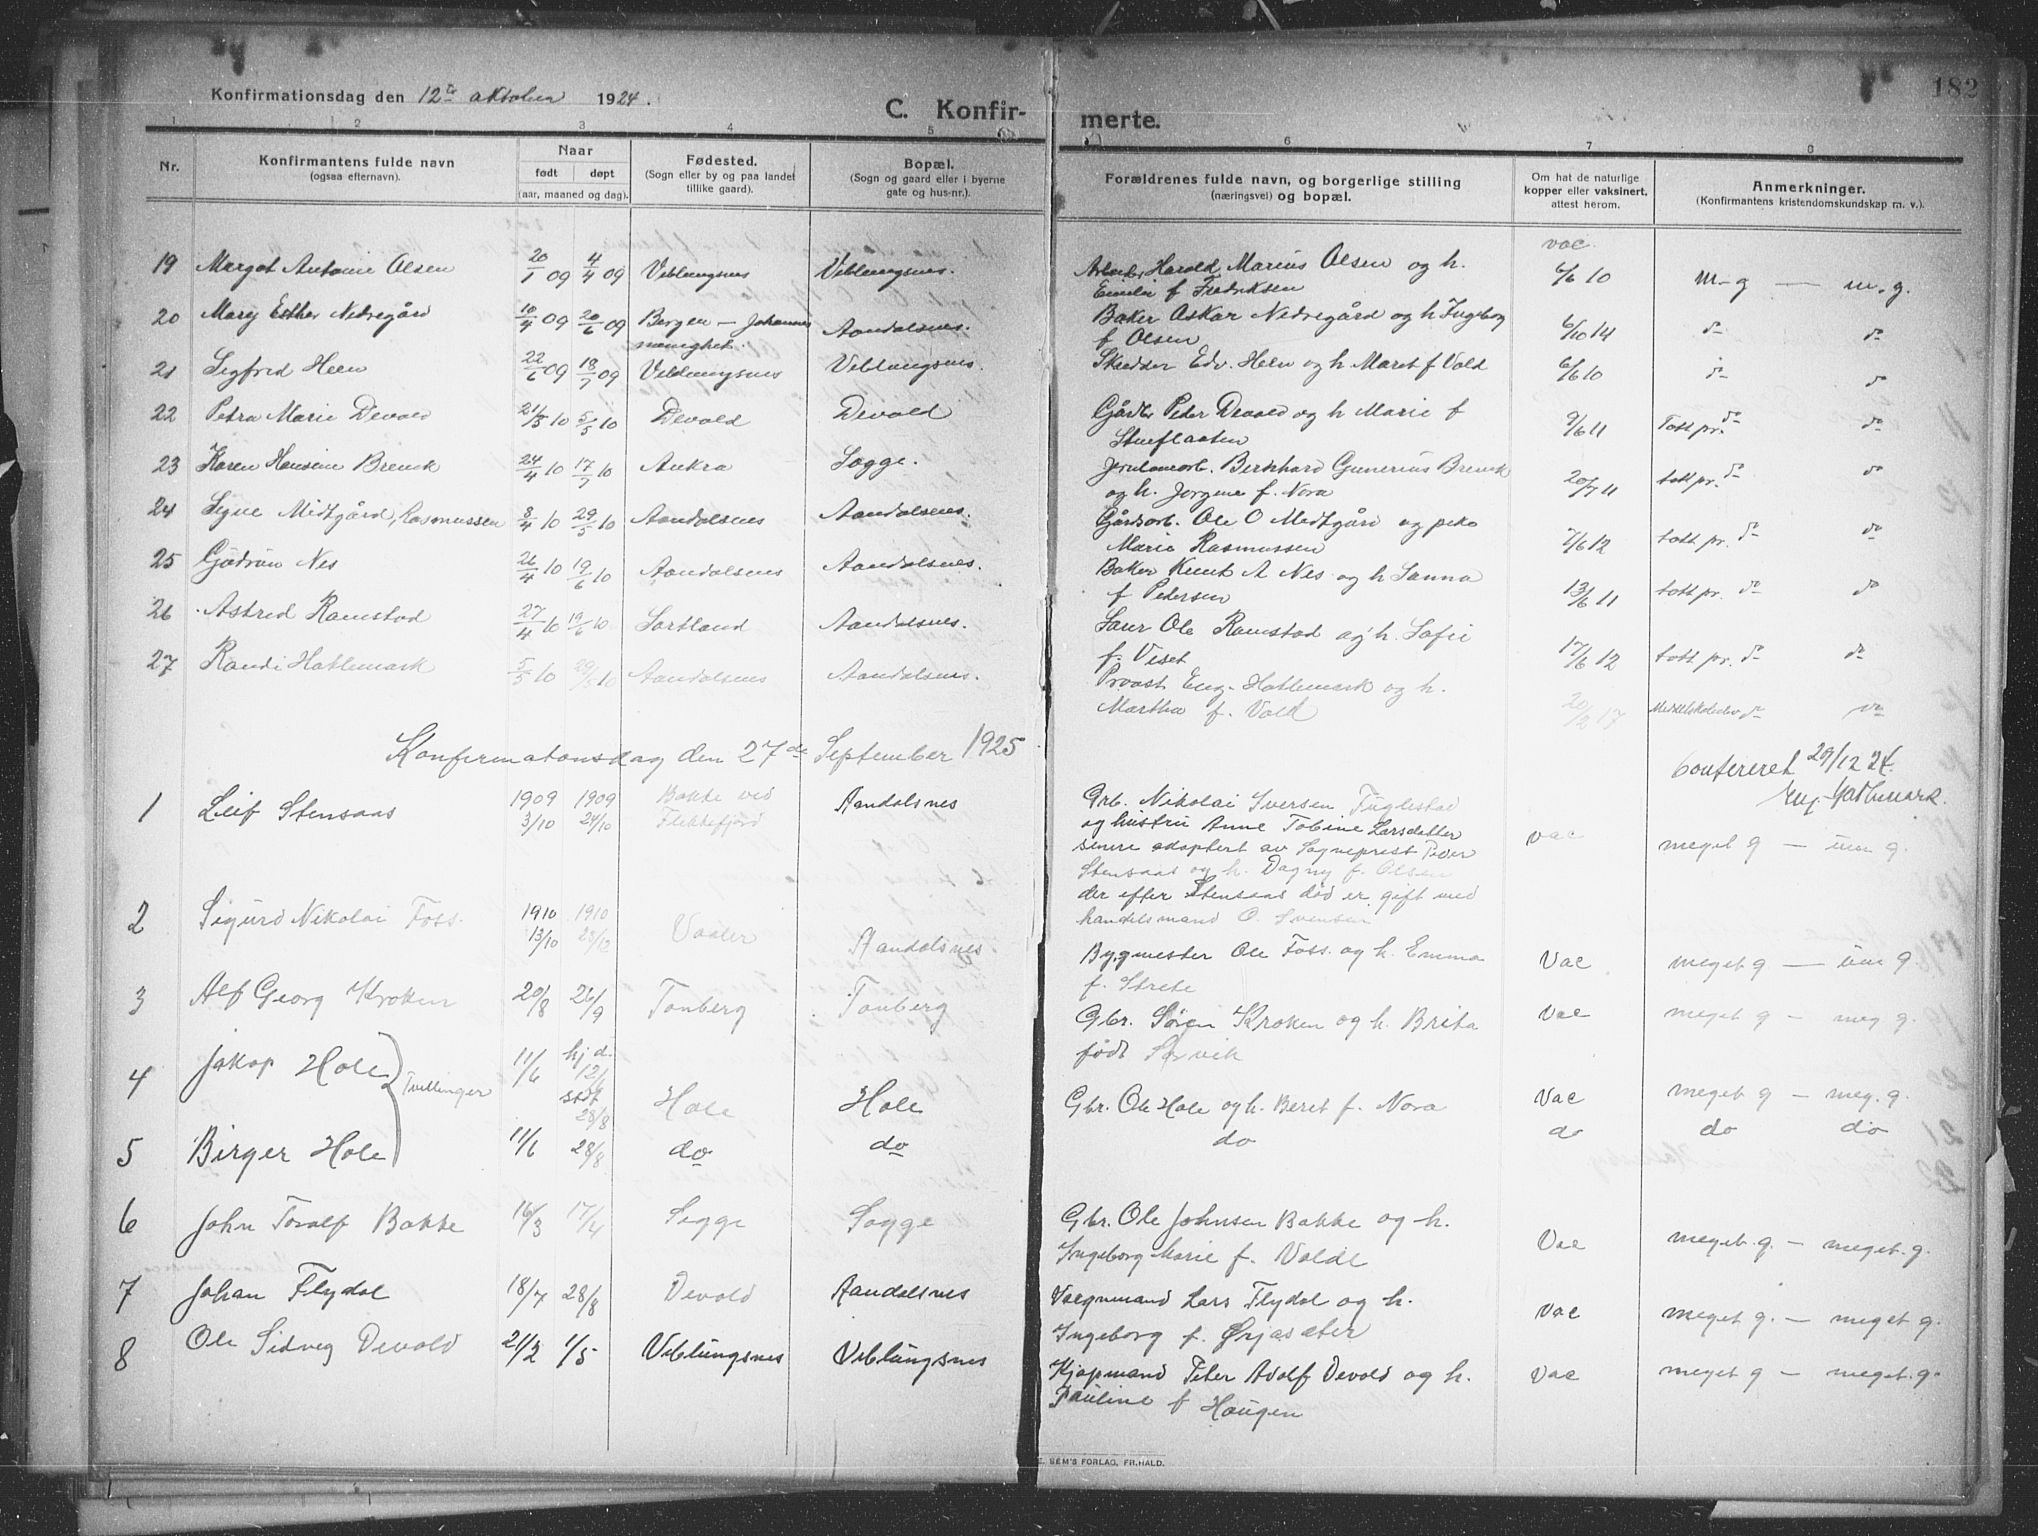 182
Konfirmationsdag den 12te oktober 1924.
C. Konfir-
merte.
1 2 3 4 5 6 7 8
Nr.
Konfirmantens fulde navn
(ogsaa efternavn).
Naar
født døpt
(aar, maaned og dag).
Fødested.
(Sogn eller by og paa landet
tillike gaard).
Bopæl.
(Sogn og gaard eller i byerne
gate og hus-nr.).
Forældrenes fulde navn, og borgerlige stilling
(næringsvei) og bopæl.
Om hat de naturlige
kopper eller vaksinert,
attest herom.
Anmerkninger.
(Konfirmantens kristendomskundskap m. v.).
vac.
19 Margot Antonie Olsen 20/1 09 4/4 09 Veblungsnes Veblungsnes. Harald Marius Olsen og h. 6/6 10 m-g — m.g.
Emilie f Fredriksen
20 Mary Esther Nedregård 10/4 09 20/6 09 Bergen — Johannes Aandalsnes. Baker Oskar Nedregård og h Ingeborg 6/10 14 do do
menighet. f Olsen
21 Sigfred Heen 22/6 09 18/7 09 Veblungsnes Veblungsnes. Skrædder Edv. Heen og h Maret f Vold 6/6 10 do do
22 Petra Marie Devold 21/3 10 5/5 10 Devold Devold Gårdbr Peder Devold og h Marie f 9/6 11 Tatt pr. do do
Stueflaaten
23 Karen Hansine Brevik 24/4 10 17/7 10 Aukra Sogge. Jernbanearb. Bernhard Gunerius Brevik 20/7 11 tatt pr. do do
og h. Jorgine f. Nora
24 Signe Midtgård, Rasmussen 8/4 10 29/5 10 Aandalsnes Aandalsnes. Gårdsarb. Ole O Midtgård og pike 7/6 12 tatt pr. do do
Marie Rasmussen
25 Gudrun Nes 26/4 10 19/6 10 Aandalsnes Aandalsnes. Baker Knut A Nes og h Sanna 13/6 11 tatt pr. do do
f Pedersen
26 Astrid Ramstad 27/4 10 19/6 10 Sortland Aandalsnes. Ole Ramstad og h. Sofie 17/6 12 tatt pr. do do
f. Viset
27 Randi Hatlemark 5/5 10 Aandalsnes Aandalsnes. Provst Eug. Hatlemark og h. Middelskoleelev do do
Martha f. Vold
Konfirmationsdag den 27de September 1925
Confereret 29/12 24.
Eug. Hatlemark.
1 Leif Stensaas 1909 1909 Bakke ved Aandalsnes Grb. Nikolai Iversen Fuglestad
3/10 24/10 Flekkefjord og hustru Anne Tobine Larsdatter vac meget g — um g.
senere adoptert av Sogneprest Peder
Stensaas og h. Dagny f. Olsen
der efter Stensaas død er gift med
handelsmand O. Svensen
2 Sigurd Nikolai Foss. 1910 1910 Vaaler Aandalsnes Bygmester Ole Foss. og h. Emma Vac meget g — um g.
13/10 28/12 f. Strete
3 Alf Georg Kroken 20/8 26/9 Tonberg Tonberg Gbr. Søren Kroken og h. Brita Vac meget g — meg g.
født Sørvik
4 Jakop Hole Tvillinger 11/6 hj.d. 12/6 Hole Hole Gbr. Ole Hole og h. Beret f. Nora Vac meget g — meg. g.
stdf
28/8
5 Birger Hole 11/6 28/8 do do do do do do
6 John Toralf Bakke 16/3 17/4 Sogge Sogge Gbr. Ole Johnsen Bakke og h. Vac meget. g. — meget. g.
Ingeborg Marie f. Volde
7 Johan Flydal 18/7 28/8 Devold Aandalsnes Vognmand Lars Flydal og h. Vac meget g. — meget g.
Ingeborg f. Ørjasæter
8 Ole Sidveg Devold 21/2 1/5 Veblungsnes Veblungsnes Kjøpmand Peter Adolf Devold og h. Vac meget g — meget. g.
Pauline f Haugen
E. SEM'S FORLAG, FR.HALD.